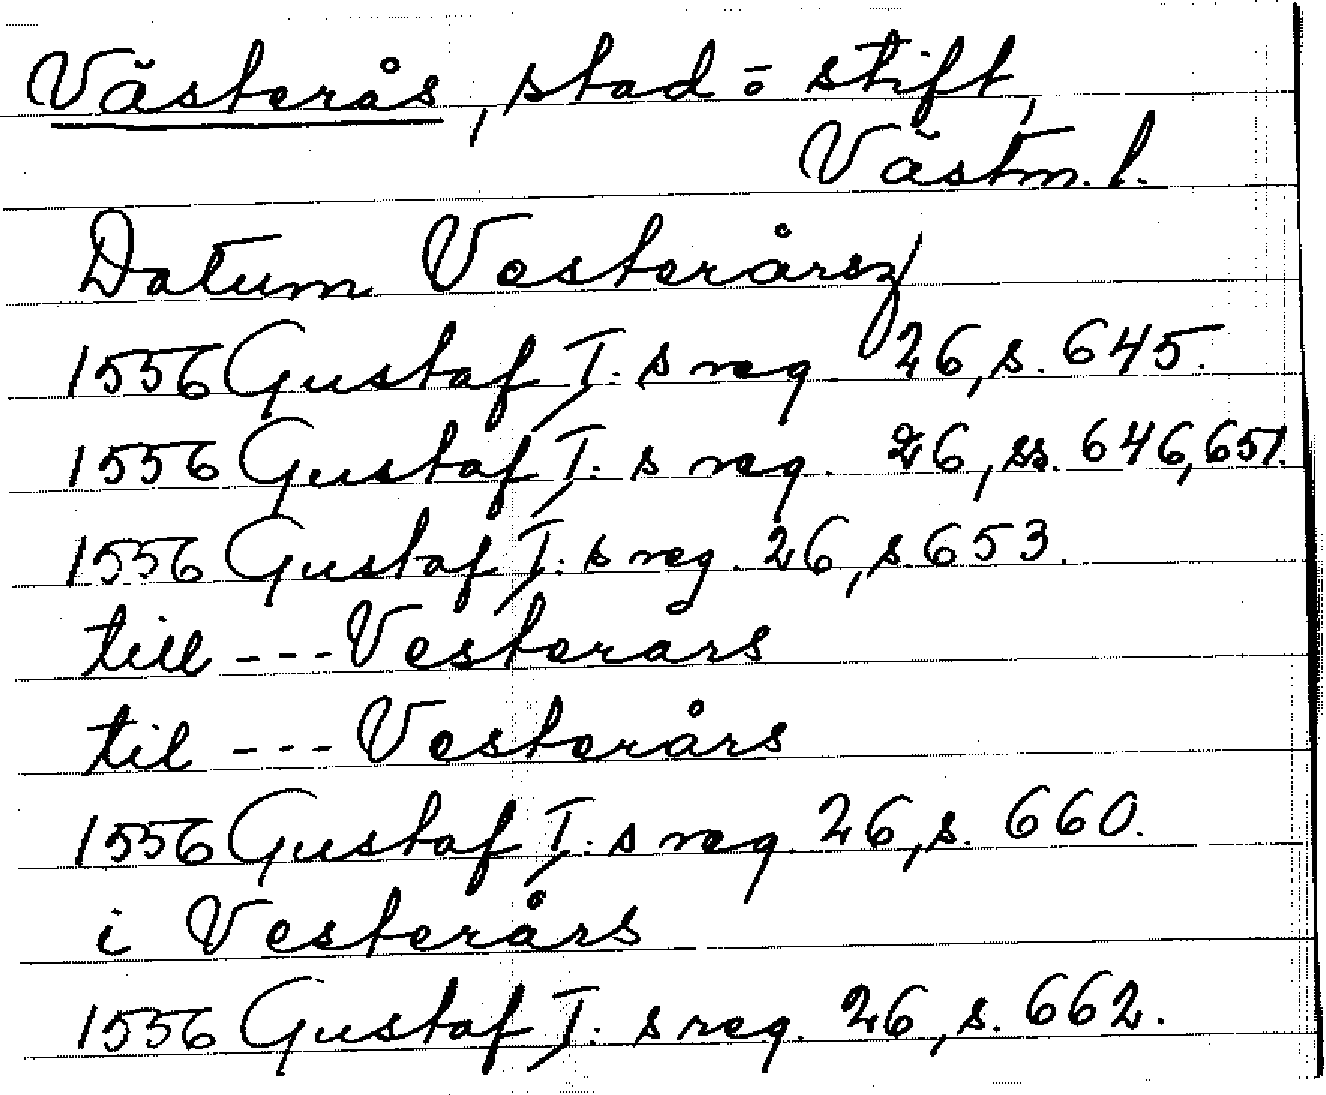 Västerås, stad o stift,
Västm. l.
Datum Vesterårsz/
1556 Gustaf I:s reg 26, s. 645.
1556 Gustaf I:s reg. 26, ss. 646, 651.
1556 Gustaf I:s reg. 26, s 653.
till --- Vesterars
til --- Vesterårs
1556 Gustaf I:s reg. 26, s. 660.
i Vesterårs
1556 Gustaf I:s reg. 26, s. 662.